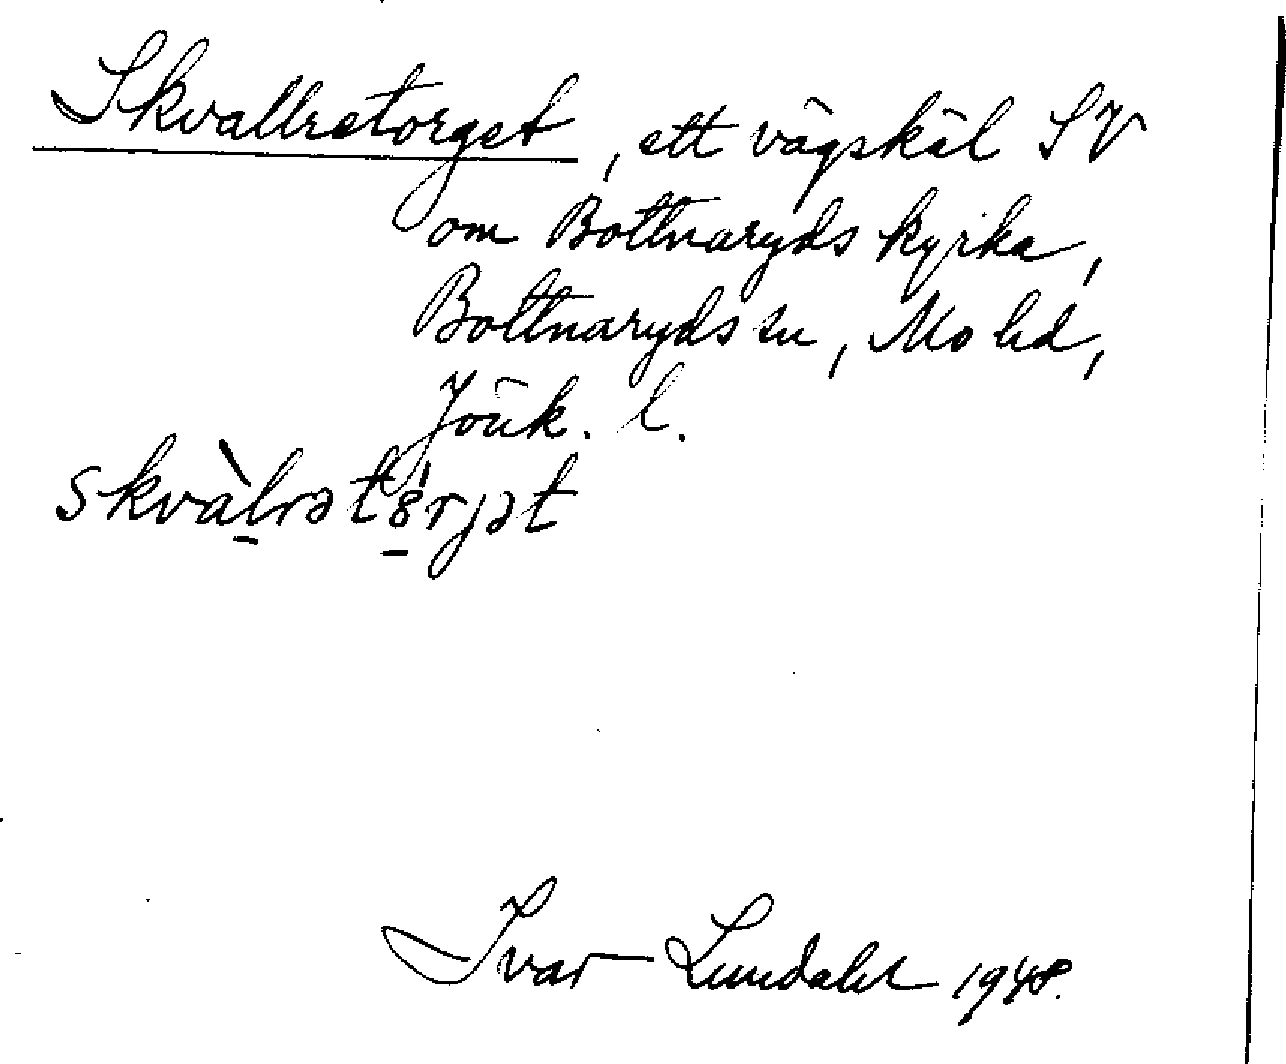 Skvallretorget, ett vägskäl SV
om Bottnaryds kyrka,
Bottnaryds sn, Mo hd,
Jönk. l.
skvàlrətórjət
Ivar Lundahl 1948.